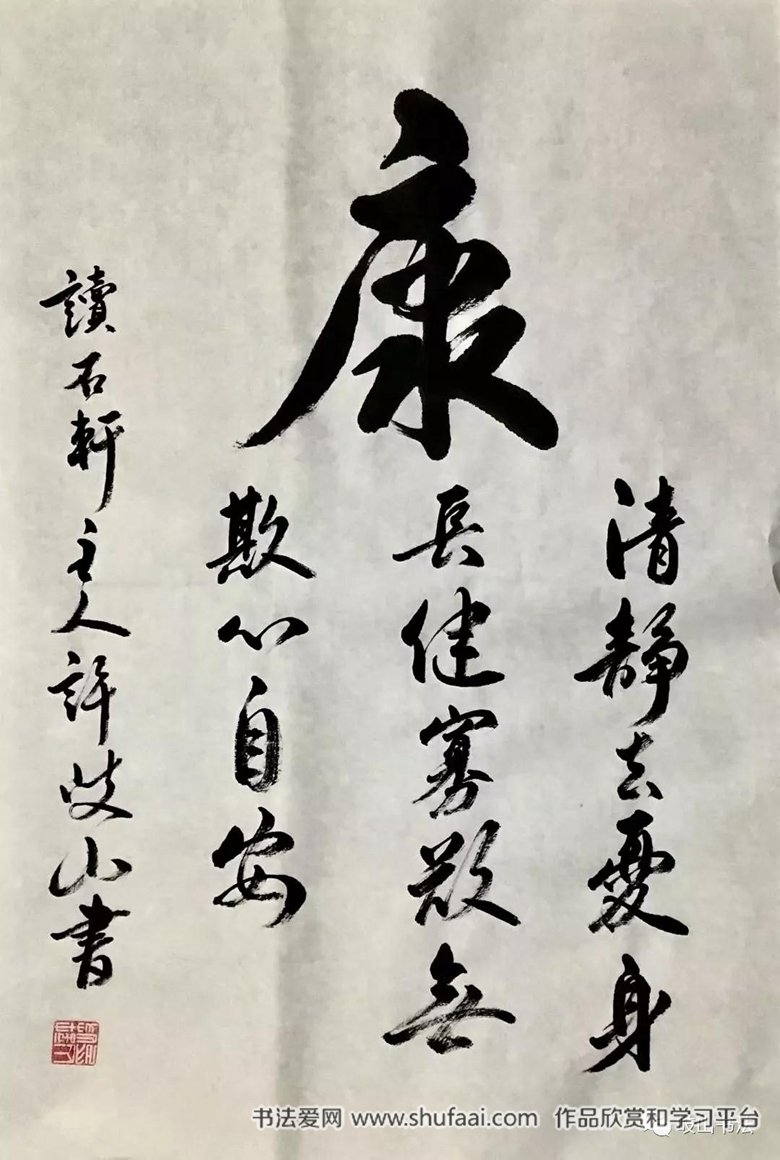 康
清靜去憂身
長健寡欲無
欺心自安
讀石軒主人許岐山書
书法爱网 www.shufaai.com 作品欣赏和学习平台
岐山书法